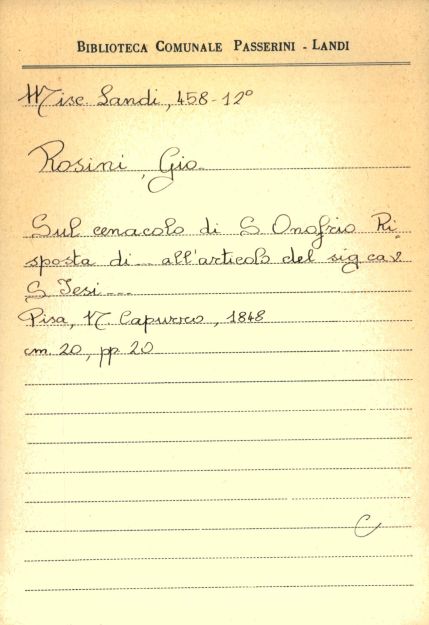 BIBLIOTECA COMUNALE PASSERINI - LANDI
Misc. Landi, 458-12°
Rosini, Gio.
Sul cenacolo di S. Onofrio Ri
sposta di ... all'articolo del sig cav
S. Jesi ...
Pisa, N. Capurro, 1848
cm. 20, pp 20
C